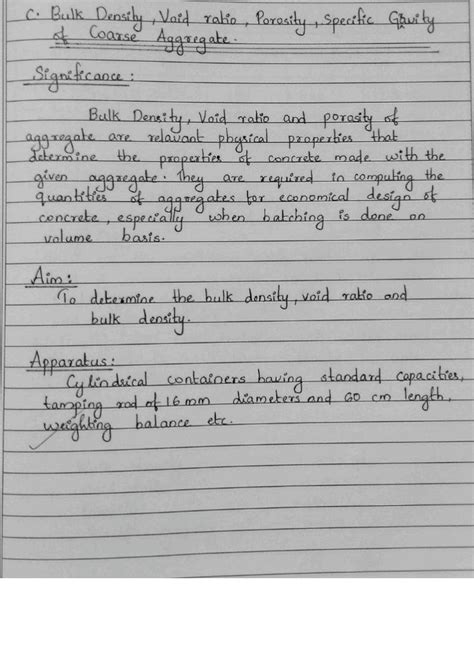 C. Bulk Density, Void ratio, Porosity, Specific Gravity
of Coarse Aggregate.
Significance:
Bulk Density, Void ratio and porosity of
aggregate are relavant physical properties that
determine the properties of concrete made with the
given aggregate. They are required in computing the
quantities of aggregates for economical design of
concrete, especially when batching is done on
volume basis.
Aim:
To determine the bulk density, void ratio and
bulk density.
Apparatus:
Cylindrical containers having standard capacities,
tamping rod of 16 mm diameters and 60 cm length,
weighting balance etc.